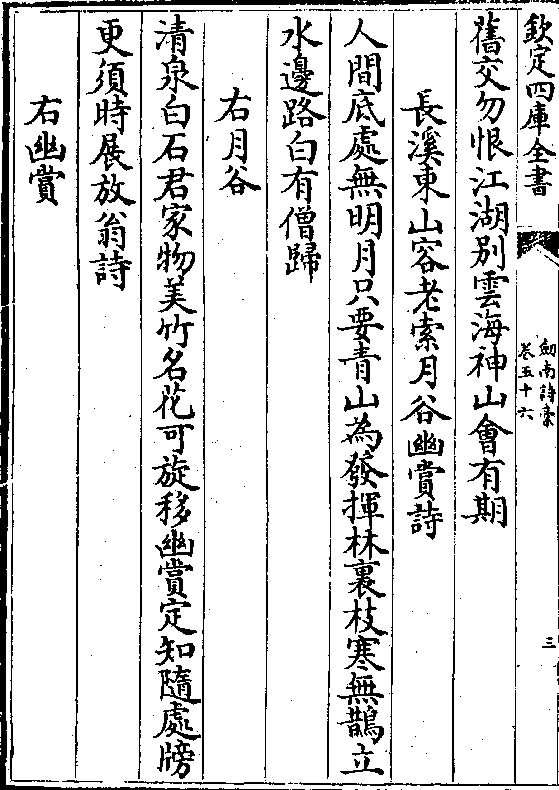 欽定四庫全書
劍南詩稾
卷五十六
三
舊交勿恨江湖别雲海神山會有期
長溪東山容老索月谷幽賞詩
人間底處無明月只要青山為發揮林裏枝寒無鵲立
水邊路白有僧歸
右月谷
清泉白石君家物美竹名花可旋移幽賞定知隨處牓
更須時展放翁詩
右幽賞